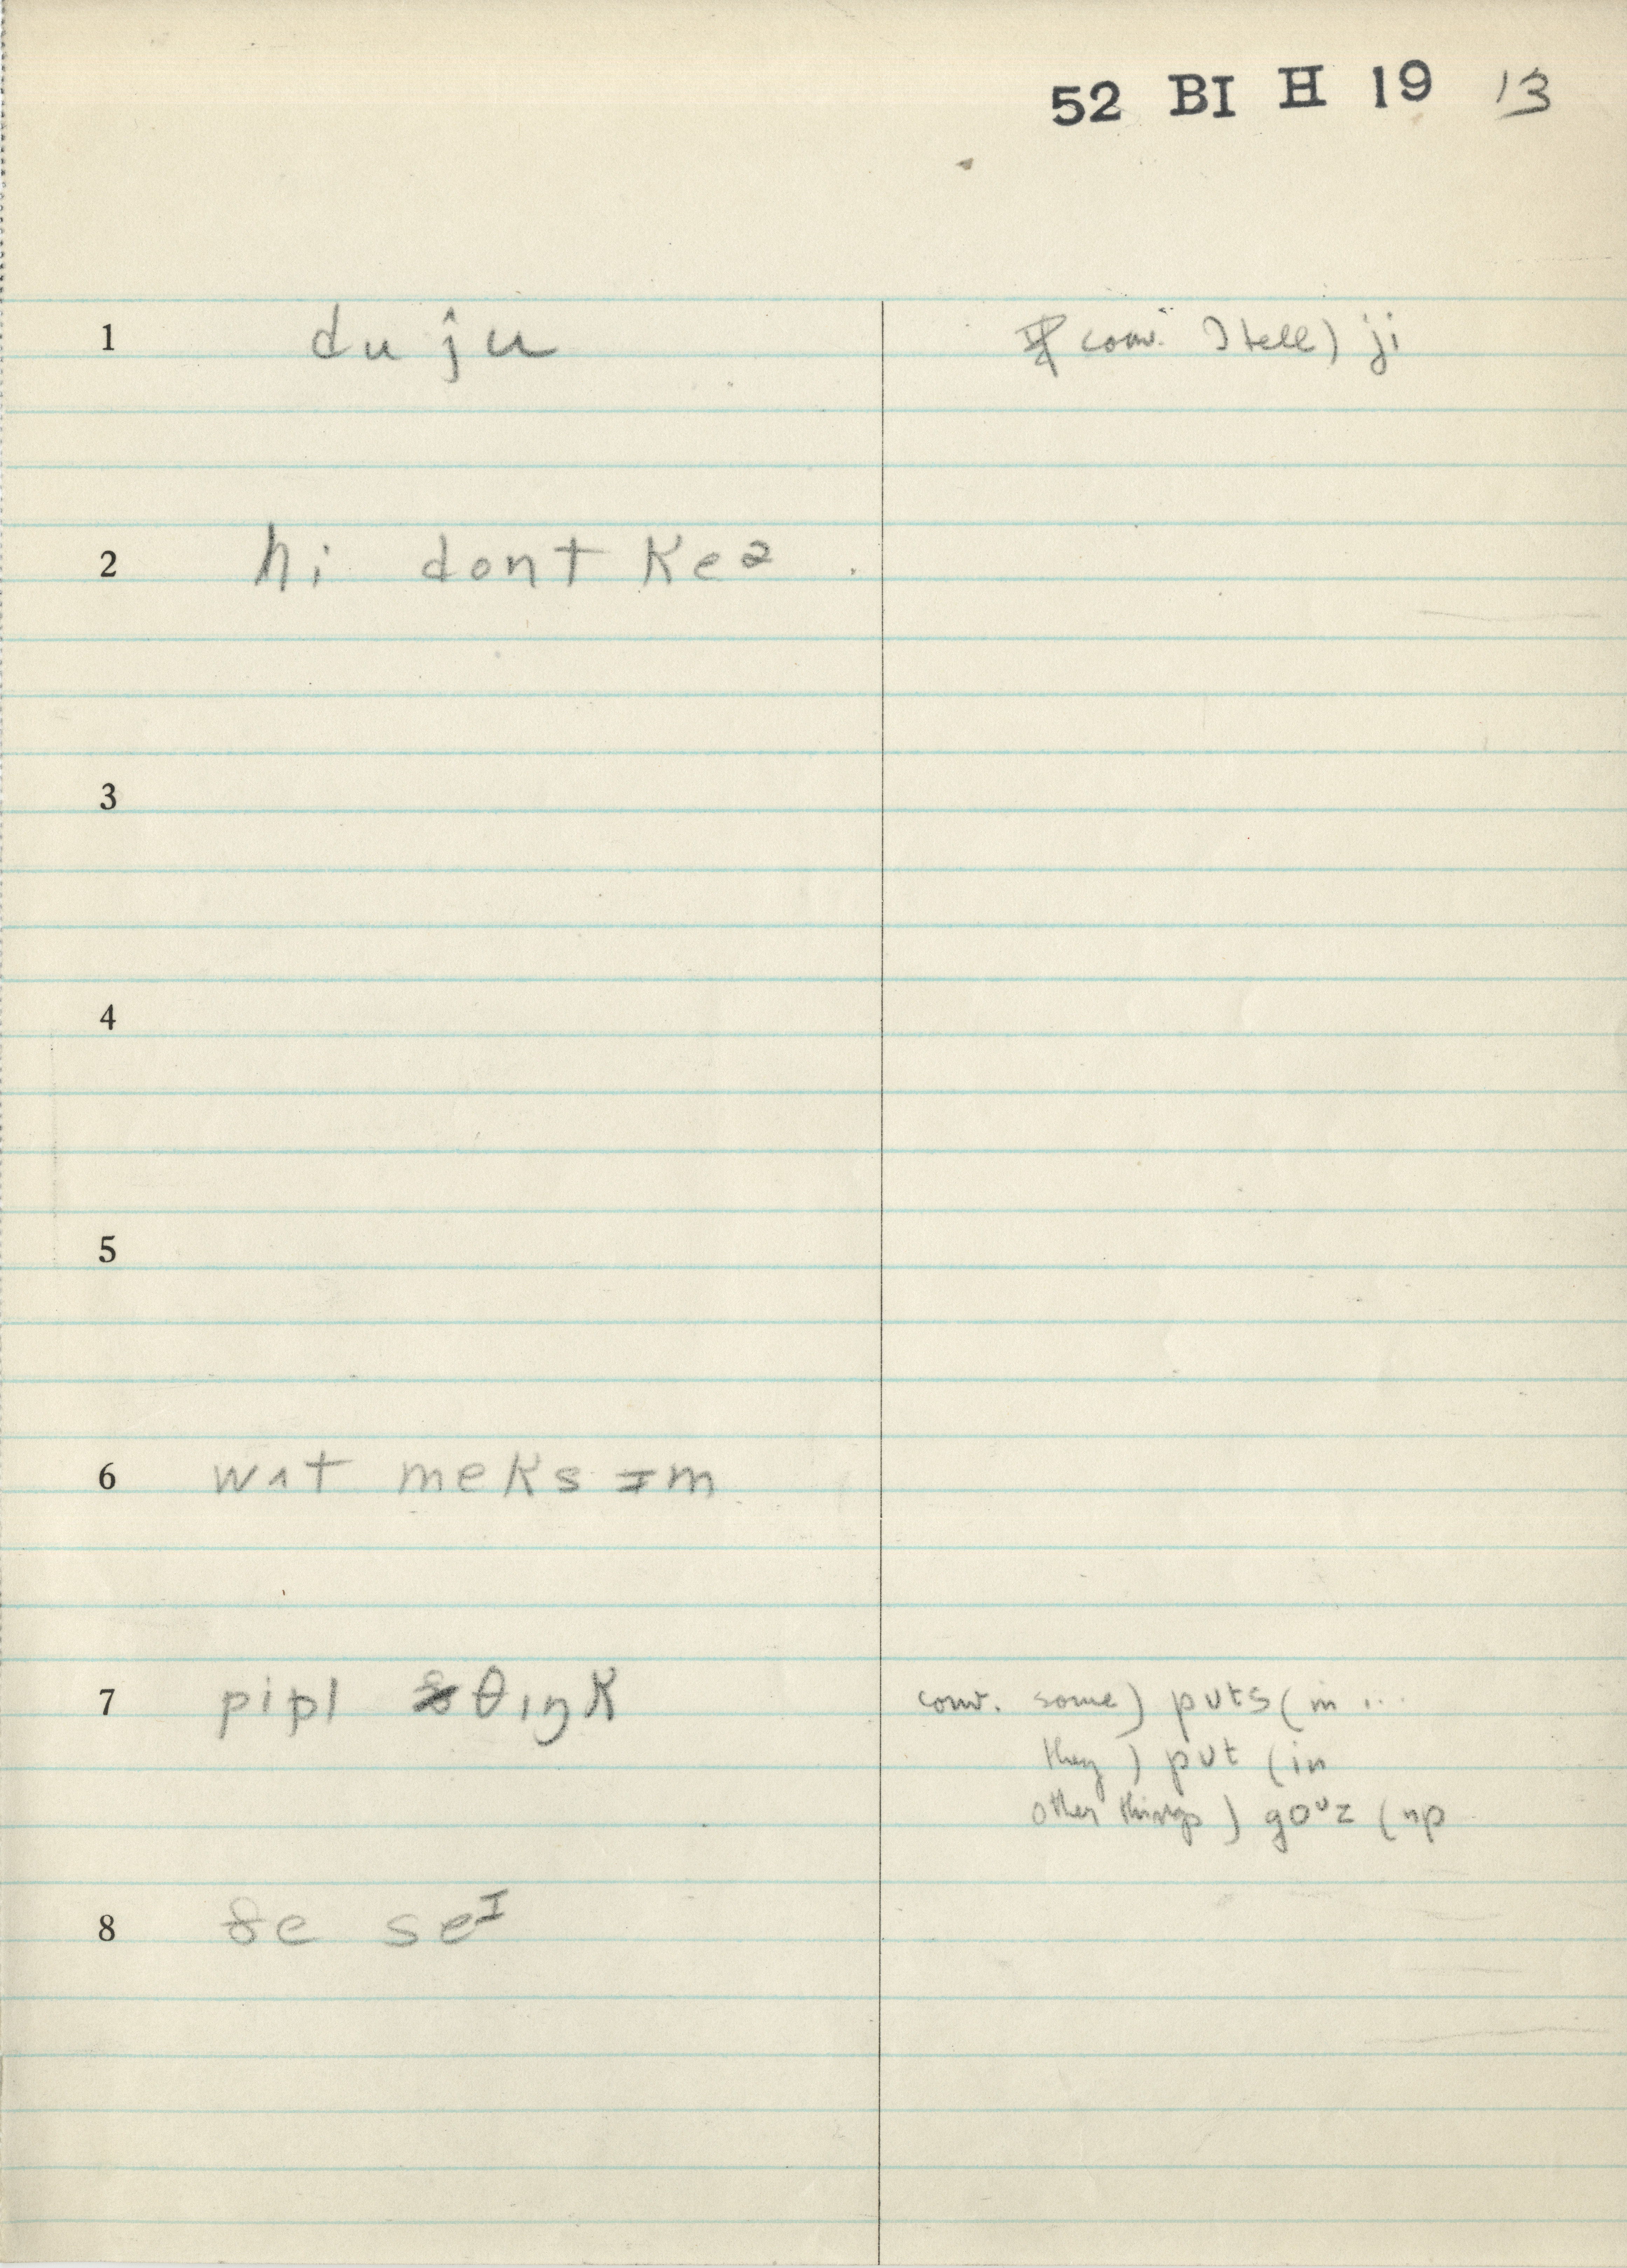 52 BI H 19 13
1 du ju conv. I tell) ji
2 hi dont keə
3
4
5
6 wʌt meks ɪm
7 pipl θɪŋk conv. some) pʊts (in ...
they) pʊt (in
other things) goᶷz (up
8 ðe seᴵ